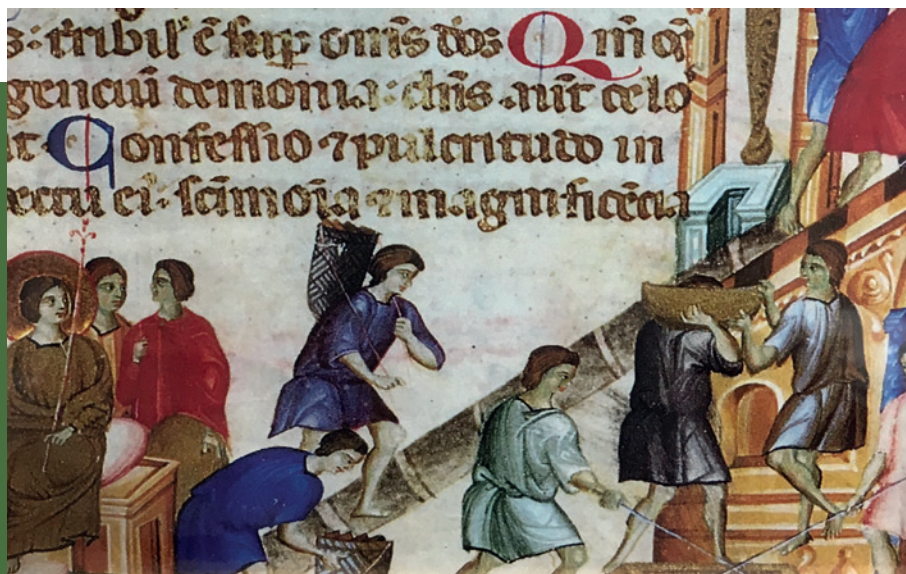 s: tribil' ē suꝑ om̄s dōs Qm̄ om̄
genciū demonia: dn̄s aūt celo
it Confessio ⁊ pulcritudo in
pectu ei: scīmōia ⁊ magnificēcia